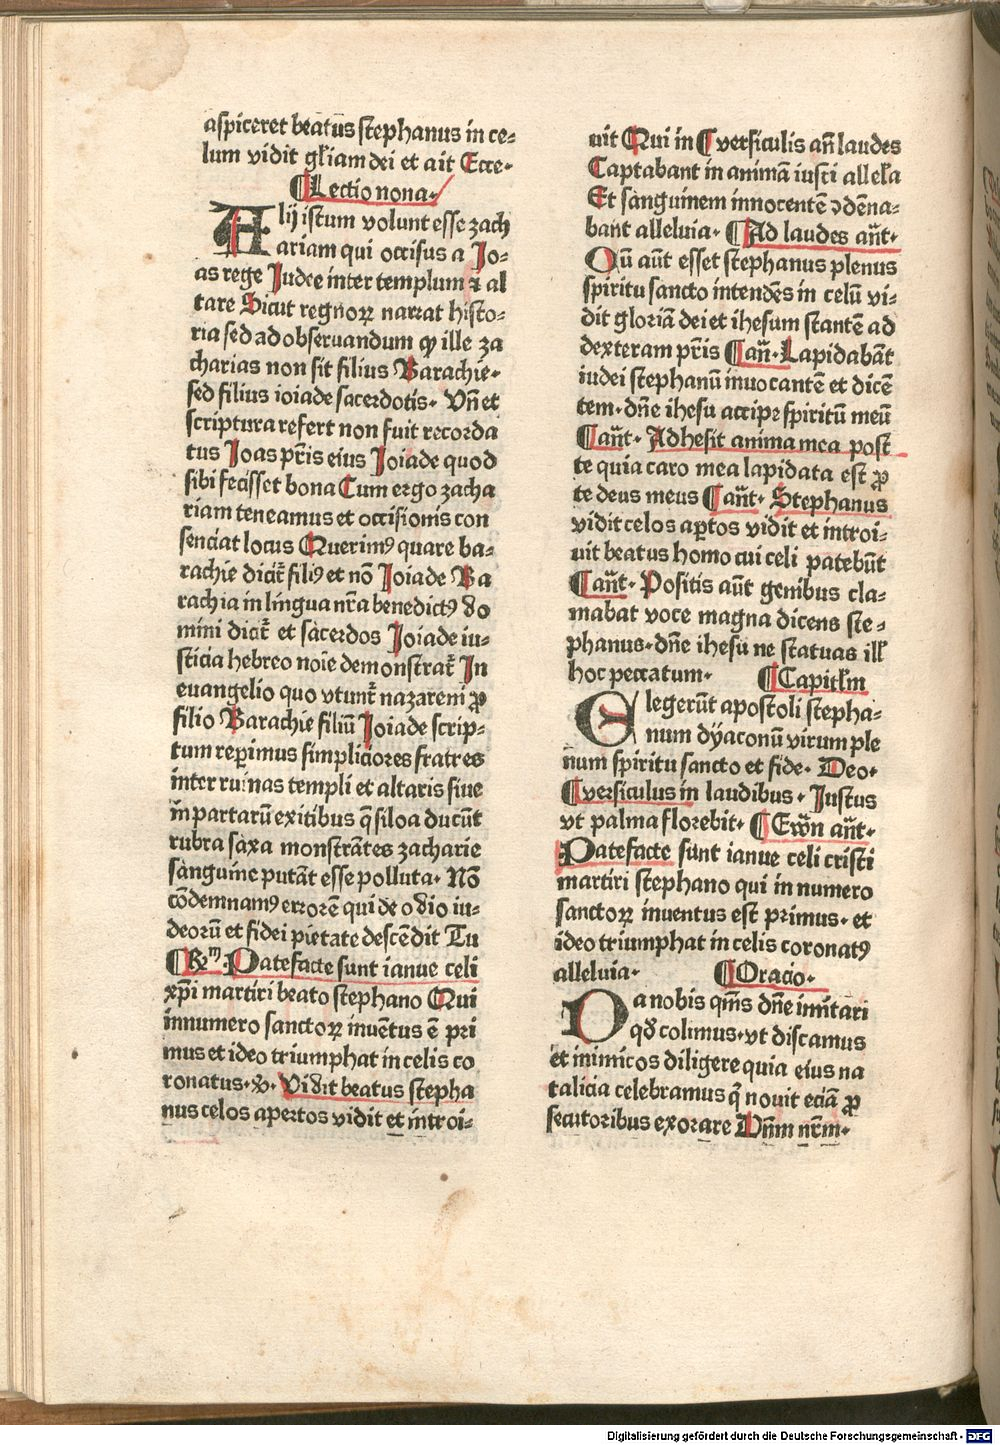 aspiceret beatus stephanus in ce⸗
lum vidit gl'iam dei et ait Ecce.
¶Lectio nona.
Alij istum volunt esse zach
ariam qui occisus a Jo⸗
as rege Judee inter templum ⁊ al
tare Sicut regnoꝝ narrat histo⸗
ria sed ad obseruandum ꝙ ille za
charias non sit filius Barachie.
sed filius ioiade sacerdotis. Vn̄ et
scriptura refert non fuit recorda
tus Joas pr̄is eius Joiade quod
sibi fecisset bona Cum ergo zacha
riam teneamus et occisionis con
senciat locus Querimꝰ quare ba⸗
rachie dicit̄ filiꝰ et nō Joiade Ba
rachia in lingua nr̄a benedictꝰ do
mini dicit̄ et sacerdos Joiade iu⸗
sticia hebreo noīe demonstrat̄ In
euangelio quo vtunt̄ nazareni ꝓ
filio Barachie filiū Joiade scrip⸗
tum reꝑimus simpliciores fratres
inter ruinas templi et altaris siue
in partarū exitibus q̄ siloa ducūt
rubra saxa monstrātes zacharie
sanguine putāt esse polluta. Nō
cōdemnamꝰ errorē qui de odio iu⸗
deorū et fidei pietate descēdit Tu
¶℟m. Patefacte sunt ianue celi
xp̄i martiri beato stephano Qui
innumero sanctoꝝ inuētus ē pri
mus et ideo triumphat in celis co
ronatus. ℣. Vidit beatus stepha
nus celos apertos vidit et introi⸗
uit Qui in ¶versiculis an̄ laudes
Captabant in animā iusti allel'a
Et sanguinem innocentē ꝯdēna⸗
bant alleluia. ¶Ad laudes an̄t.
Cū aūt esset stephanus plenus
spiritu sancto intendēs in celū vi⸗
dit gloriā dei et ihesum stantē ad
dexteram pr̄is ¶an̄. Lapidabāt
iudei stephanū inuocantē et dicē
tem. dn̄e ihesu accipe spiritū meū
¶an̄t. Adhesit anima mea post
te quia caro mea lapidata est ꝓ
te deus meus ¶an̄t. Stephanus
vidit celos aꝑtos vidit et introi⸗
uit beatus homo cui celi patebūt
¶an̄t. Positis aūt genibus cla⸗
mabat voce magna dicens ste⸗
phanus. dn̄e ihesu ne statuas ill'
hoc peccatum. ¶Capitl'm
Elegerūt apostoli stepha⸗
num dÿaconū virum ple
num spiritu sancto et fide. Deo.
¶versiculus in laudibus. Justus
vt palma florebit. ¶Ewn̄ an̄t.
Patefacte sunt ianue celi cristi
martiri stephano qui in numero
sanctoꝝ inuentus est primus. et
ideo triumphat in celis coronatꝰ
alleluia. ¶Oracio.
Da nobis qm̄s dn̄e imitari
qd̄ colimus. vt discamus
et inimicos diligere quia eius na
talicia celebramus q̄ nouit eciā ꝓ
secutoribus exorare Dn̄m nr̄m.
Digitalisierung gefördert durch die Deutsche Forschungsgemeinschaft - DFG